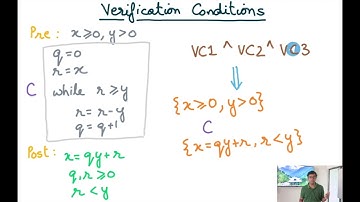 Verification Conditions
Pre: x≥0, y>0
C
q=0
r=x
while r≥y
r=r-y
q=q+1
Post: x=qy+r
q,r≥0
r<y
VC1 ^ VC2 ^ VC3
⇓
{x≥0, y>0}
C
{x=qy+r, r<y}